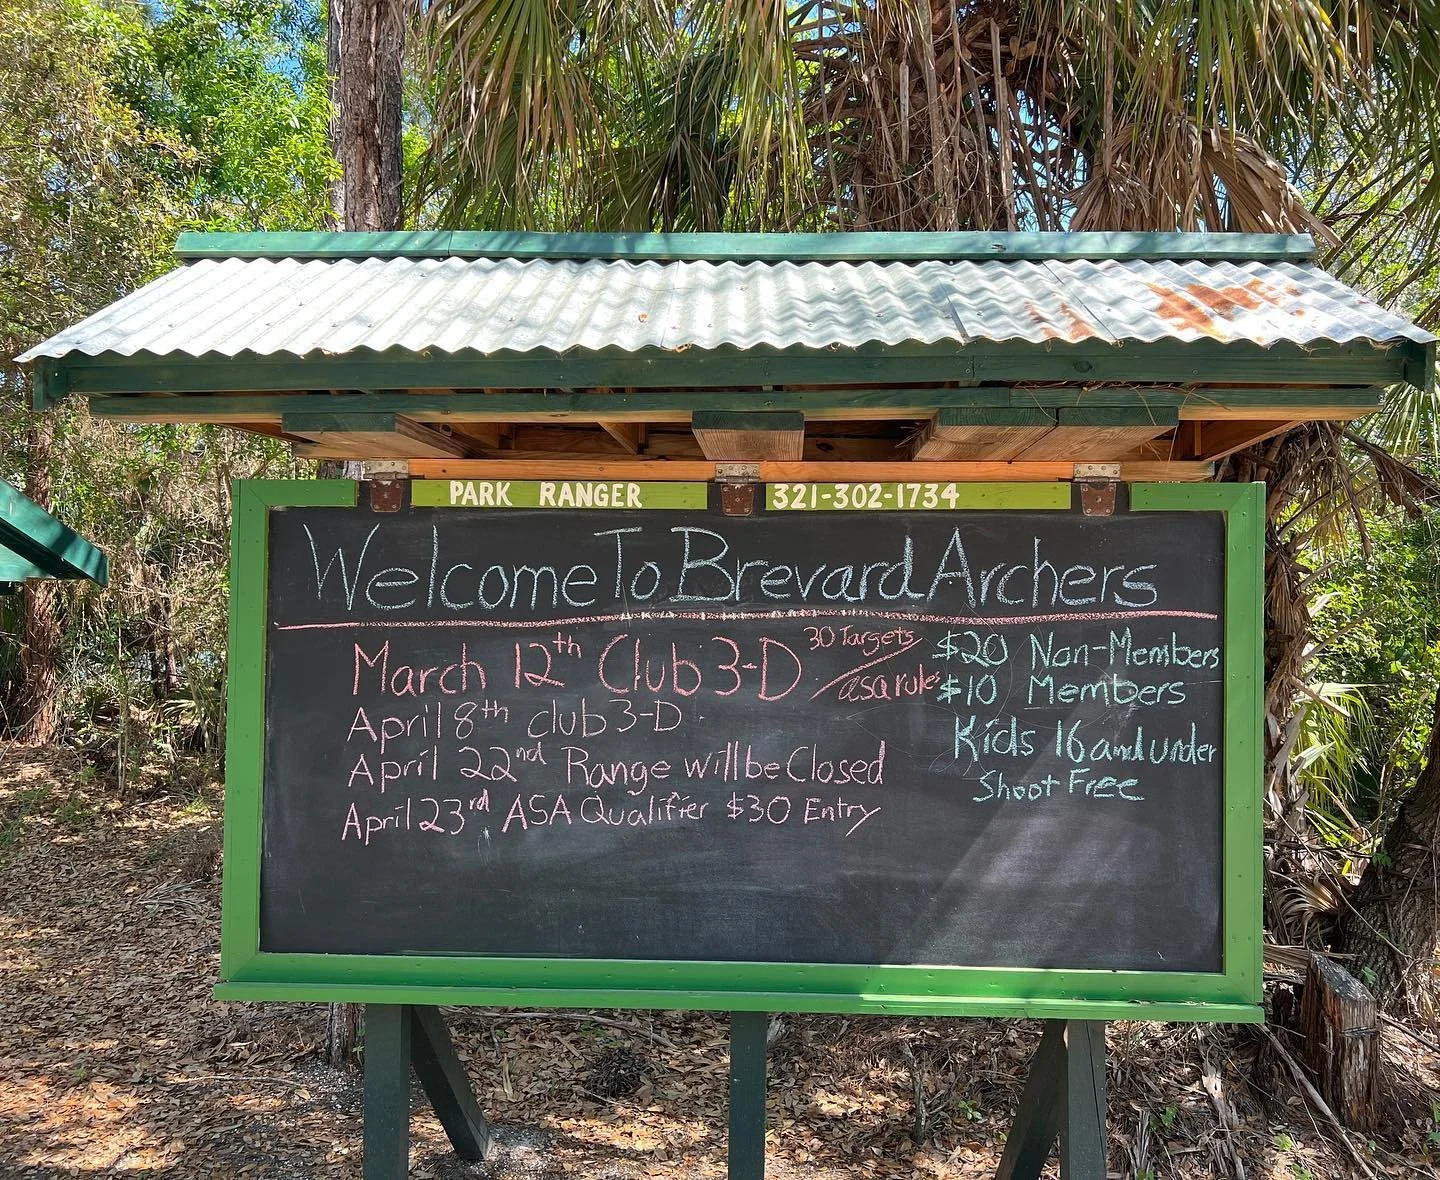 PARK RANGER 321-302-1734
Welcome To Brevard Archers
March 12th Club 3-D 30 Targets/asa rules
April 8th club 3-D
April 22nd Range will be Closed
April 23rd ASA Qualifier $30 Entry
$20 Non-Members
$10 Members
Kids 16 and under
Shoot Free